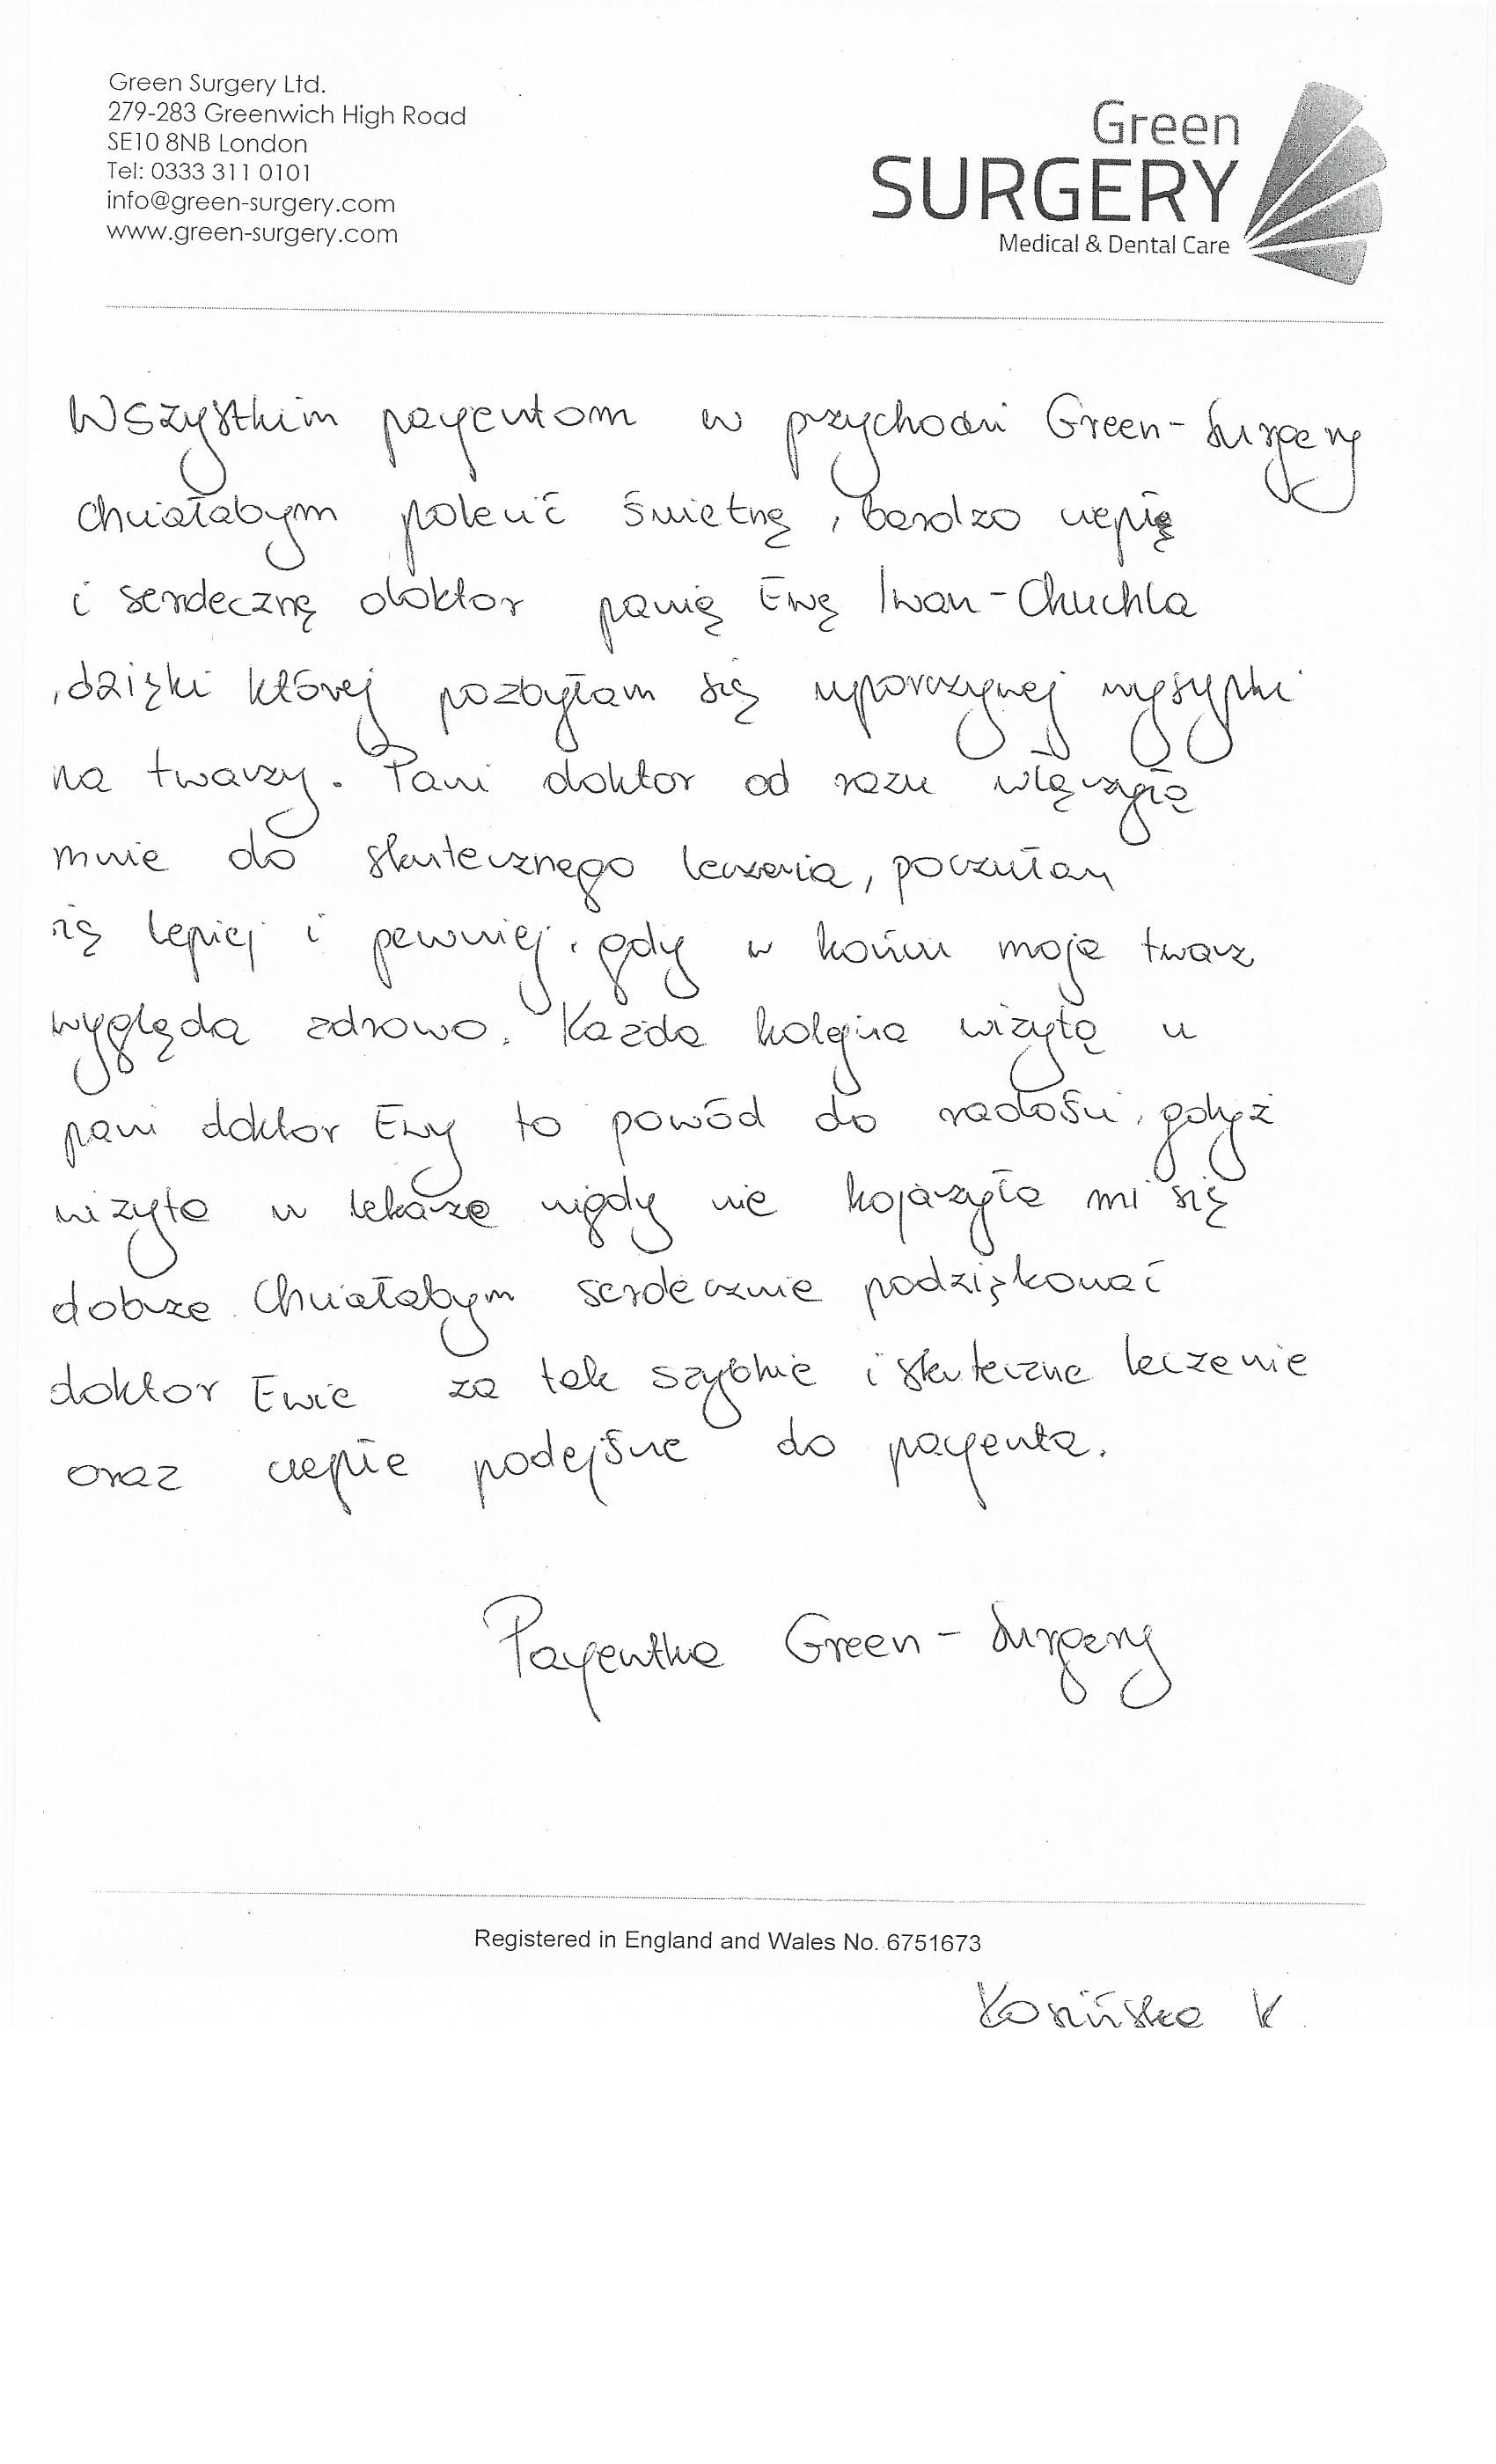 Green Surgery Ltd.
279-283 Greenwich High Road
SE10 8NB London
Tel: 0333 311 0101
info@green-surgery.com
www.green-surgery.com
Green
SURGERY
Medical & Dental Care
Wszystkim pacjentom w przychodni Green-Surgery
chciałabym polecić świetną, bardzo ciepłą
i serdeczną doktor panią Ewę Iwan-Chuchla
, dzięki której pozbyłam się uporczywej wysypki
na twarzy. Pani doktor od razu włączyła
mnie do skutecznego leczenia, poczułam
się lepiej i pewniej, gdy w końcu moja twarz
wygląda zdrowo. Każda kolejna wizyta u
pani doktor Ewy to powód do radości, gdyż
wizyta u lekarza nigdy nie kojarzyła mi się
dobrze. Chciałabym serdecznie podziękować
doktor Ewie za tak szybkie i skuteczne leczenie
oraz ciepłe podejście do pacjenta.
Pacjentka Green-Surgery
Registered in England and Wales No. 6751673
Kosińska K.